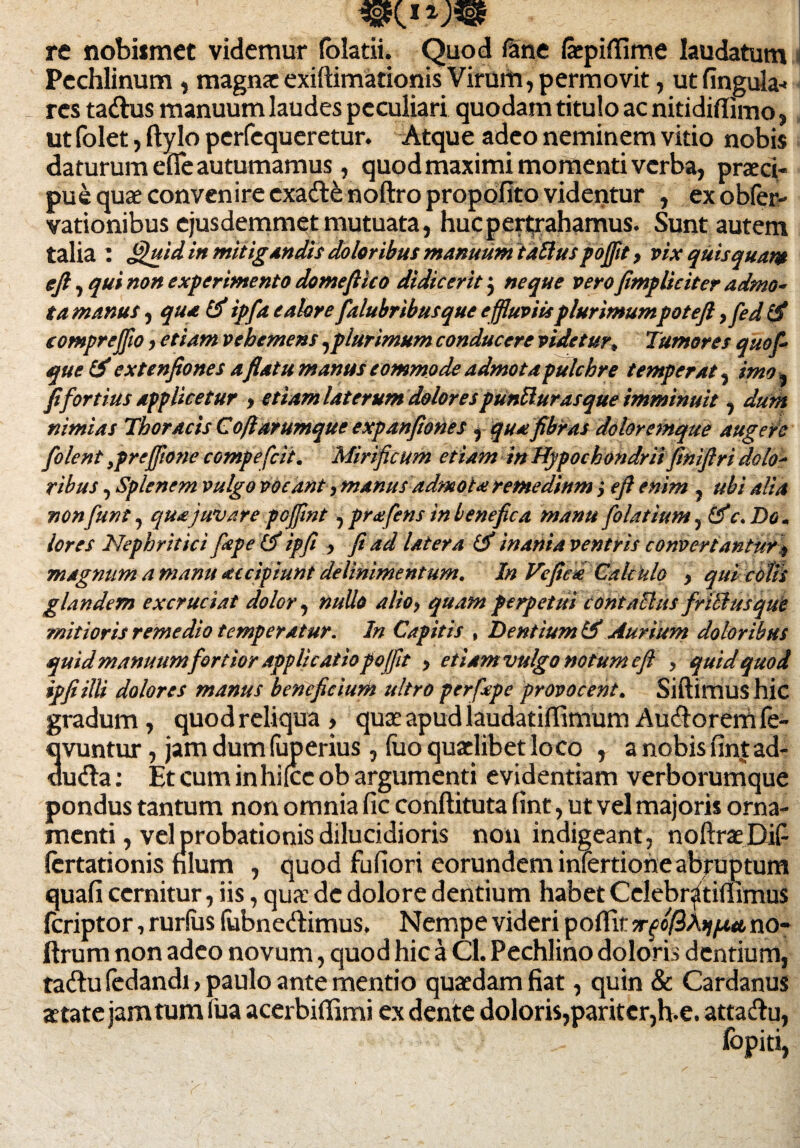 (12)
re nobismet videmur ſolatii. Quod ſane ſæpiſſime laudatum
Pechlinum , magnæ exiſtimationis Virum, permovit, ut ſingula-
res tactus manuum laudes peculiari quodam titulo ac nitidiſſimo,
ut ſolet, ſtylo perſequeretur. Atque adeo neminem vitio nobis
daturum eſſe autumamus, quod maximi momenti verba, præci-
puè quæ convenire exactè noſtro propoſito videntur , ex obſer-
vationibus ejusdemmet mutuata, huc pertrahamus. Sunt autem
talia : Quid in mitigandis doloribus manuum tactus poſſit, vix quisquam
eſt, qui non experimento domeſtico didicerit; neque vero ſimpliciter admo-
ta manus, qua & ipſa calore ſalubribusque effluviis plurimum poteſt, ſed &
compreſſio, etiam vehemens, plurimum conducere videtur. Tumores quoſ-
que & extenſiones a flatu manus commode admota pulchre temperat, imo,
ſi fortius applicetur , etiam laterum dolores punctur​asque imminuit , dum
nimias Thoracis Coſtarumque expanſiones , quæ fibras doloremque augere
ſolent, preſſione compeſcit. Mirificum etiam in Hypochondrii ſiniſtri dolo-
ribus, Splenem vulgo vocant, manus admotæ remedium; eſt enim , ubi alia
non ſunt, quæ juvare poſſint , præſens in benefica manu ſolatium, &c. Do-
lores Nephritici ſæpe & ipſi , ſi ad latera & inania ventris convertantur,
magnum a manu accipiunt delinimentum. In Veſicæ Calculo , qui colis
glandem excruciat dolor, nullo alio, quam perpetui contactus frictusque
mitioris remedio temperatur. In Capitis , Dentium & Aurium doloribus
quid manuum fortior applicatio poſſit , etiam vulgo notum eſt , quid quod
ipſi illi dolores manus beneficium ultro perſæpe provocent. Siſtimus hic
gradum , quod reliqua , quæ apud laudatiſſimum Auctorem ſe-
qvuntur, jam dum ſuperius, ſuo quælibet loco , a nobis ſint ad-
ducta: Et cum in hiſce ob argumenti evidentiam verborumque
pondus tantum non omnia ſic conſtituta ſint, ut vel majoris orna-
menti, vel probationis dilucidioris non indigeant, noſtræ Diſ-
ſertationis filum , quod fuſiori eorundem inſertione abruptum
quaſi cernitur, iis, quæ de dolore dentium habet Celebratiſſimus
ſcriptor, rurſus ſubnectimus. Nempe videri poſſit πρόβλημα no-
ſtrum non adeo novum, quod hic à Cl. Pechlino doloris dentium,
tactu ſedandi, paulo ante mentio quædam fiat , quin & Cardanus
ætate jam tum ſua acerbiſſimi ex dente doloris, pariter, h.e. attactu,
ſopiti,